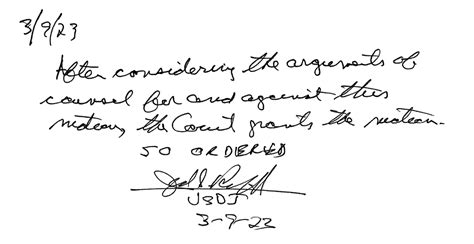 3/9/23
After considering the arguments of
counsel for and against this
motion, the Court grants the motion.
SO ORDERED
USDJ
3-9-23